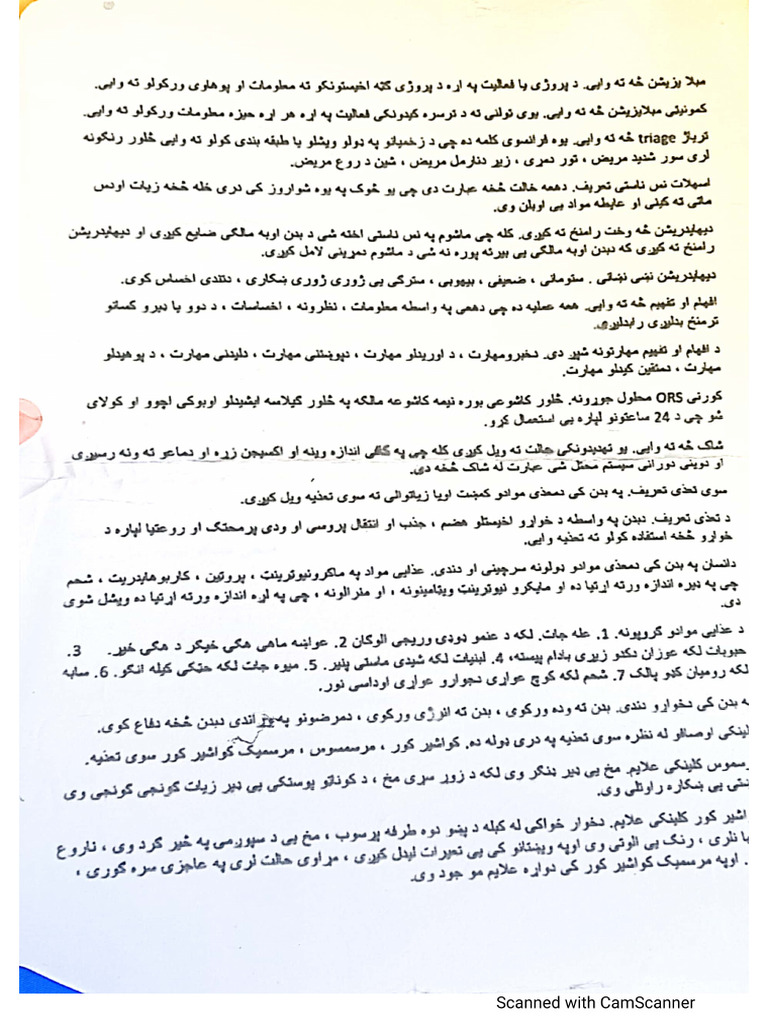 مبلا یزیشن څه ته وایی. د پروژی یا فعالیت په اړه د پروژی ګټه اخیستونکو ته معلومات او پوهاوی ورکولو ته وایی.
کمونیتی مبلایزیشن څه ته وایی. یوی تولنی ته د ترسره کیدونکی فعالیت په اړه هر اړه حیزه معلومات ورکولو ته وایی.
تریاژ triage څه ته وایی. یوه فرانسوی کلمه ده چی د زخمیانو په ډولو ویشلو یا طبقه بندی کولو ته وایی څلور رنګونه
لری سور شدید مریض ، تور دمړی ، زیړ دنارمل مریض ، شین د روغ مریض.
اسهلات نس ناستی تعریف. دهعه خالت څخه عبارت دی چی یو څوک په یوه شواروز کی دری خله څخه زیات اودس
ماتی ته کینی او غایطه مواد یی اوبلن وی.
دیهایدریشن څه وخت رامنخ ته کیږی. کله چی ماشوم په نس ناستی اخته شی د بدن اوبه مالګی ضایع کیږی او دیهایدریشن
رامنخ ته کیږی که دبدن اوبه مالګی یی بیرته پوره نه شی د ماشوم دمړینی لامل کیږی.
دیهایدریشن نښی نښانی . ستومانی ، ضعیفی ، بیهوبی ، سترګی یی ژوری ژوری ښکاری ، دتندی اخساس کوی.
افهام او تفهیم څه ته وایی. همه عملیه ده چی دهعی په واسطه معلومات ، نظرونه ، اخساسات ، د دوو یا ډیرو کسانو
ترمنخ بدلیږی رابدلیږی.
د افهام او تفهیم مهارتونه شپږ دی. دخبرومهارت ، د اوریدلو مهارت ، دپوښتنی مهارت ، دلیدنی مهارت ، د پوهیدلو
مهارت ، دمتقین کیدلو مهارت.
کورنی ORS محلول جوړونه. څلور کاشوعی بوره نیمه کاشوعه مالګه په څلور ګیلاسه ایشیدلو اوبوکی اچوو او کولای
شو چی د 24 ساعتونو لپاره یی استعمال کړو.
شاک څه ته وایی. یو تهدیدونکی حالت ته ویل کیږی کله چی په کافی اندازه وینه او اکسیجن زړه او دماعو ته ونه رسیږی
او دوینی دورانی سیستم مختل شی عبارت له شاک څخه دی.
سوی تعذی تعریف. په بدن کی دمعذی موادو کمښت اویا زیاتوالی ته سوی تعذیه ویل کیږی.
د تعذی تعریف. دبدن په واسطه د خواړو اخیستلو هضم ، جذب او انتقال پروسی او ودی پرمختګ او روعتیا لپاره د
خواړو څخه استفاده کولو ته تعذیه وایی.
دانسان په بدن کی دمعذی موادو ډولونه سرچینی او دندی. عذایی مواد په ماکرونیوترینټ ، پروتین ، کاربوهایدریت ، شحم
چی په ډیره اندازه ورته اړتیا ده او مایکرو نیوترینټ ویټامینونه ، او منرالونه ، چی په لږه اندازه ورته اړتیا ده ویشل شوی
دی.
د عذایی موادو ګروپونه. 1. عله جات. لکه د عنمو ډوډی وریجی الوګان 2. عواښه ماهی هګی خیګر د هګی خیړ. 3.
حبوبات لکه عوزان دکدو زیړی بادام پیسته، 4. لبنیات لکه شیدی ماستی پنیر. 5. میوه جات لکه حټکی کیله انګو. 6. سابه
لکه رومیان کدو پالک 7. شحم لکه کوچ عواړی دجوارو عواړی اوداسی نور.
په بدن کی دخواړو دندی. بدن ته وده ورکوی ، بدن ته انرژی ورکوی ، دمرضونو په وړاندی دبدن څخه دفاع کوی.
لینکی اوصافو له نظره سوی تعذیه په دری ډوله ده. کواشیر کور ، مرسمسوس ، مرسمیک کواشیر کور سوی تعذیه.
رسموس کلینکی علایم. مخ یی ډیر ډنګر وی لکه د زوړ سړی مخ ، د کوناټو پوستکی یی ډیر زیات ګونجی ګونجی وی
ښتی یی ښکاره راوتلی وی.
واشیر کور کلینکی علایم. دخوار خواکی له کبله د پښو دوه طرفه پړسوب ، مخ یی د سپوږمی په څیر ګرد وی ، ناروع
یا نلری ، رنګ یی الوتی وی اوپه ویښتانو کی یی تعیرات لیدل کیږی ، مړاوی حالت لری په عاجزی سره ګوری ،
. اوپه مرسمیک کواشیر کور کی دواړه علایم مو جود وی.
Scanned with CamScanner